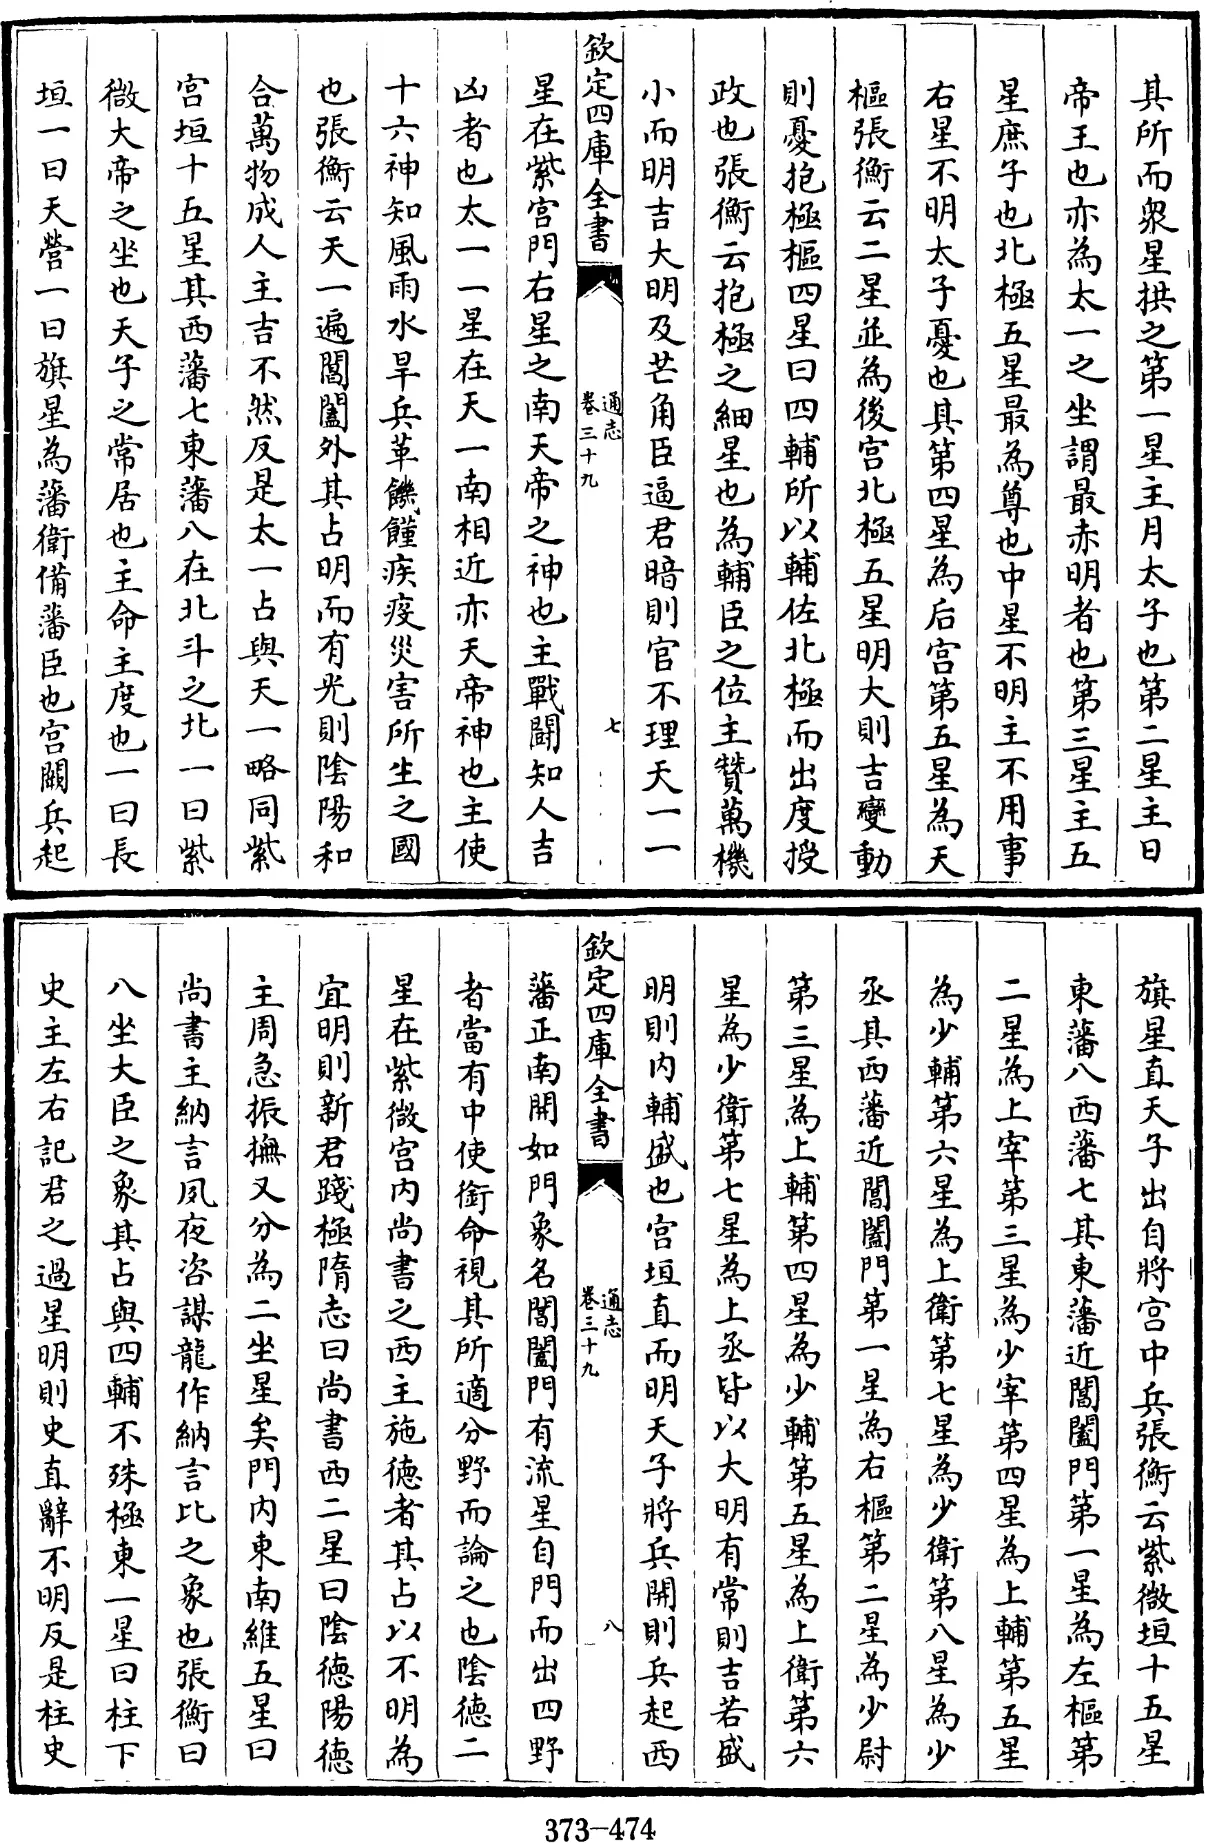 其所而衆星拱之第一星主月太子也第二星主日
帝王也亦為太一之坐謂最赤明者也第三星主五
星庶子也北極五星最為尊也中星不明主不用事
右星不明太子憂也其第四星為后宫第五星為天
樞張衡云二星並為後宫北極五星明大則吉變動
則憂抱極樞四星曰四輔所以輔佐北極而出度授
政也張衡云抱極之細星也為輔臣之位主贊萬機
小而明吉大明及芒角臣逼君暗則官不理天一一
欽定四庫全書
通志
卷三十九
七
星在紫宫門右星之南天帝之神也主戰鬭知人吉
凶者也太一一星在天一南相近亦天帝神也主使
十六神知風雨水旱兵革饑饉疾疫災害所生之國
也張衡云天一遍閶闔外其占明而有光則陰陽和
合萬物成人主吉不然反是太一占與天一略同紫
宫垣十五星其西藩七東藩八在北斗之北一曰紫
微大帝之坐也天子之常居也主命主度也一曰長
垣一曰天營一曰旗星為藩衛備藩臣也宫闕兵起
旗星直天子出自將宫中兵張衡云紫微垣十五星
東藩八西藩七其東藩近閶闔門第一星為左樞第
二星為上宰第三星為少宰第四星為上輔第五星
為少輔第六星為上衛第七星為少衛第八星為少
丞其西藩近閶闔門第一星為右樞第二星為少尉
第三星為上輔第四星為少輔第五星為上衛第六
星為少衛第七星為上丞皆以大明有常則吉若盛
明則内輔盛也宫垣直而明天子將兵開則兵起西
欽定四庫全書
通志
卷三十九
八
藩正南開如門象名閶闔門有流星自門而出四野
者當有中使銜命視其所適分野而論之也陰德二
星在紫微宫内尚書之西主施德者其占以不明為
宜明則新君踐極隋志曰尚書西二星曰陰德陽德
主周急振撫又分為二坐星矣門内東南維五星曰
尚書主納言夙夜咨謀龍作納言比之象也張衡曰
八坐大臣之象其占與四輔不殊極東一星曰柱下
史主左右記君之過星明則史直辭不明反是柱史
373-474